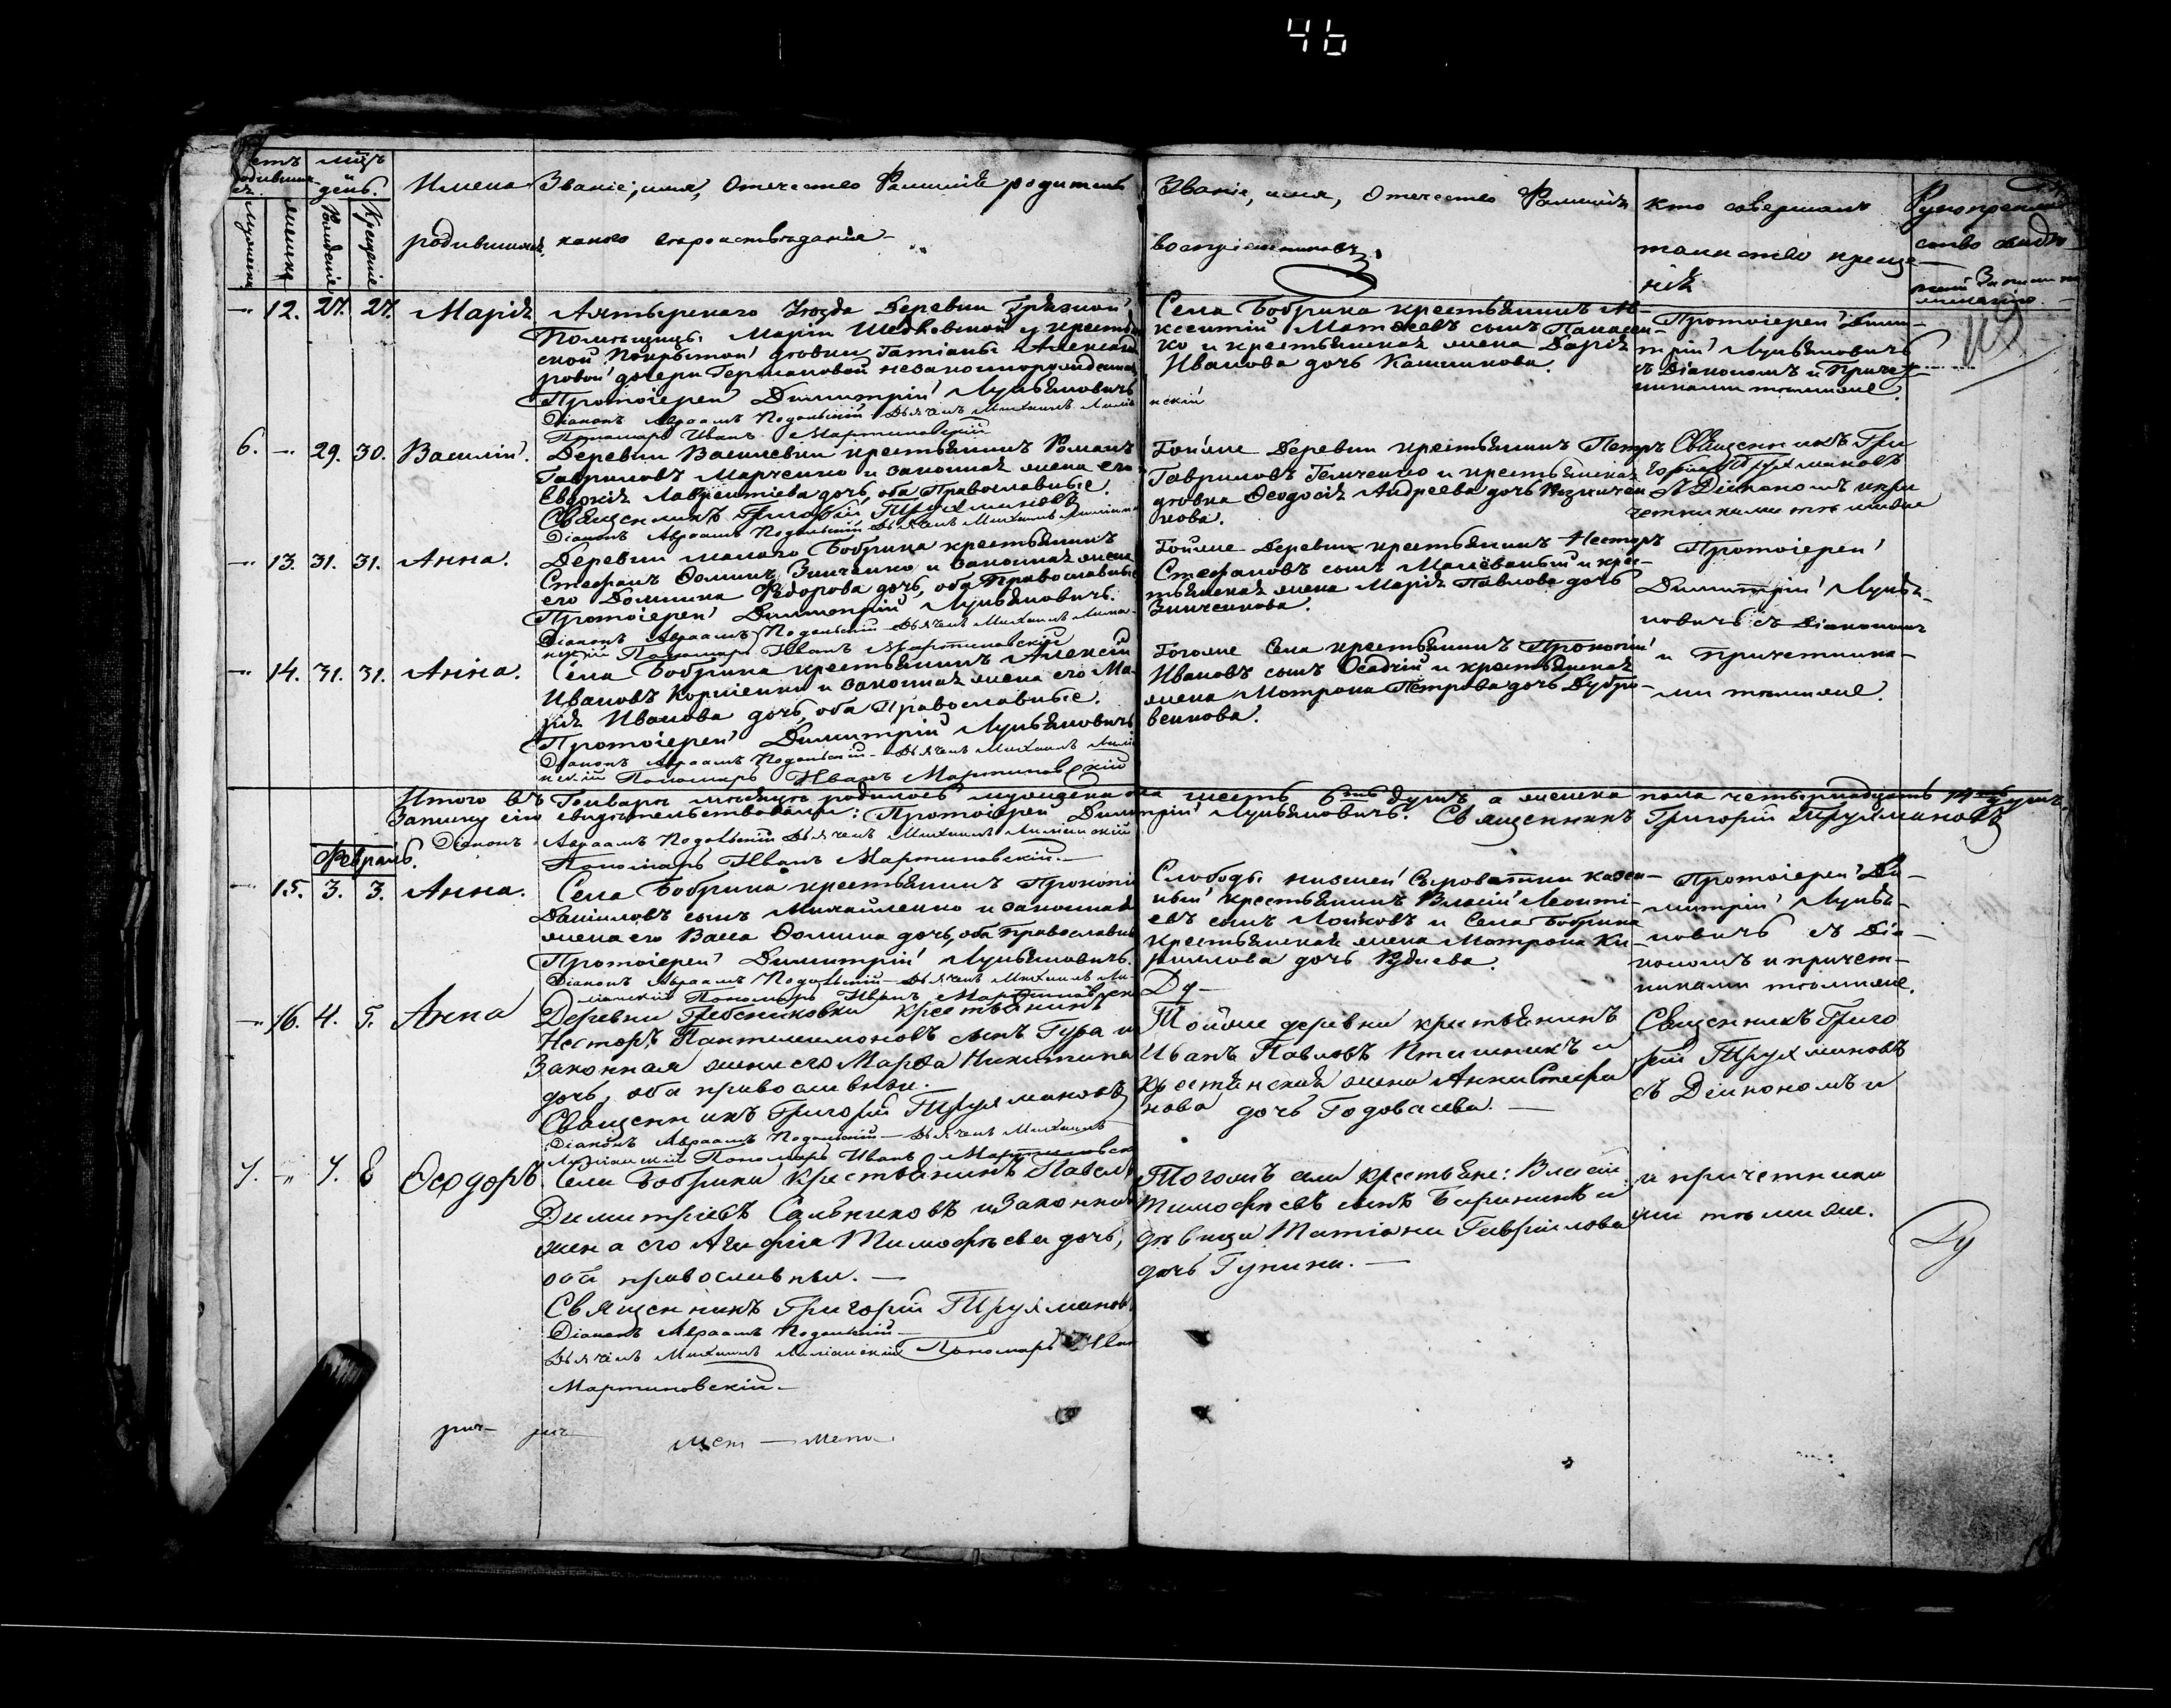 46
мѣць
и
день.
Мужеска
женска
Рожденіе
Крещеніе
Имена
родившихся.
Званіе, имя, Отечество Фамилія родителей
какого вѣроисповѣданія
Званіе, имя, Отечество Фамилія
воспріемниковъ.
кто совершалъ
таинство креще-
нія
12. 27. 27. Марія
Ахтырскаго Уѣзда Деревни Грязной
Помѣщицы Маріи
ской Покрытки дѣвки Татіаны Александ
ровой дочери Германовой незаконнорожденная
Протоіерей Димитрій Лукьяновичъ
Діаконъ Авраамъ Подольскій Дьячекъ Михаилъ
Пономарь Иванъ Мартиновскій
Села Бобрика крестьянинъ Ав-
ксентій Матѳеевъ сынъ Панасен-
ко и крестьянская жена Дарія
Иванова дочь Калинкова.
Протоіерей Дими-
трій Лукьяновичъ
съ Діакономъ и Приче-
тниками тѣмиже.
6. 29. 30. Василій.
Деревни Василевки крестьянинъ Романъ
Гавриловъ Марченко и законная жена его
Евдокія Лаврентіева дочь, оба Православные.
Священникъ Григорій Трухмановъ
Діаконъ Авраамъ Подольскій Дьячекъ Михаилъ
Тойже Деревни крестьянинъ Петръ
Гавриловъ Темченко и крестьянская
дѣвка Ѳеодосія Андреева дочь
нова.
Священникъ Гри
горій Трухмановъ
съ Діакономъ и при
четниками тѣмиже
13. 31. 31. Анна.
Деревни малаго Бобрика крестьянинъ
Стефанъ Ѳоминъ Зинченко и законная жена
его Домника Ѳедорова дочь, оба Православные
Протоіерей Димитрій Лукьяновичъ.
Діаконъ Авраамъ Подольскій Дьячекъ Михаилъ
Пономарь Иванъ Мартиновскій
Тойже Деревни крестьянинъ Несторъ
Стефановъ сынъ Малеваный и крес-
тьянская жена Марія Павлова дочь
Зинченкова.
Протоіерей
Димитрій Лукья-
новичъ съ Діакономъ
14. 31. 31. Анна.
Села Бобрика крестьянинъ Алексій
Ивановъ Корніенко и законная жена его Ма-
рія Иванова дочь, оба Православные.
Протоіерей Димитрій Лукьяновичъ
Діаконъ Авраамъ Подольскій Дьячекъ Михаилъ
Пономарь Иванъ Мартиновскій
Тогоже Села крестьянинъ Прокопій
Ивановъ сынъ Осадчій и крестьянская
жена Мотрона Петрова дочь Дубро-
венкова.
и Причетника-
ми тѣмиже.
Итого въ Генварѣ мѣсяцѣ родилось мужеска пола шесть 6ть душъ а женска пола четырнадцать 14ть душъ.
Записку сію свидѣтельствовали: Протоіерей Димитрій Лукьяновичъ. Священникъ Григорій Трухмановъ
Діаконъ Авраамъ Подольскій Дьячекъ Михаилъ
Пономарь Иванъ Мартиновскій.
Февраль.
15. 3. 3. Анна.
Села Бобрика крестьянинъ Прокопій
Даниловъ сынъ Михайленко и законная
жена его Васса Ѳомина дочь, оба Православны
Протоіерей Димитрій Лукьяновичъ.
Діаконъ Авраамъ Подольскій Дьячекъ Михаилъ
Пономарь Иванъ Мартиновскій
Слободы нижней Сыроватки казен-
ный крестьянинъ Власій Леонті-
евъ сынъ Лойковъ и Села Бобрика
крестьянская жена Мотрона Ки-
рилова дочь Рудаева.
Протоіерей Ди-
митрій Лукья-
новичъ съ Діа-
кономъ и причет-
никами тѣмиже.
16. 4. 5. Анна
Деревни Гребениковки крестьянинъ
Несторъ Пантелимоновъ сынъ Гура и
Законная жена его Марѳа Никитина
дочь, оба православныи.
Священникъ Григорій Трухмановъ
Діаконъ Авраамъ Подольскій Дьячекъ Михаилъ
Пономарь Иванъ Мартиновскій
Тойже деревни крестьянинъ
Иванъ Павловъ Птишникъ и
крестьянская жена Анна Стефа
нова дочь Годоваева.
Священникъ Григо
рій Трухмановъ
съ Діакономъ и
7. 7. 8 Ѳеодоръ.
Села Бобрика Крестьянинъ Павелъ
Димитріевъ Сальниковъ и Законная
жена его Агафія Тимофѣева дочь,
оба православныи.
Священникъ Григорій Трухмановъ
Діаконъ Авраамъ Подольскій
Дьячекъ Михаилъ Пономарь Иван
Мартиновскій.
Тогожъ села крестьяне: Власій
Тимофѣевъ сынъ Бариникъ и
дѣвица Татіана Гаврилова
дочь Гукина.
и причетника
ми тѣмиже.